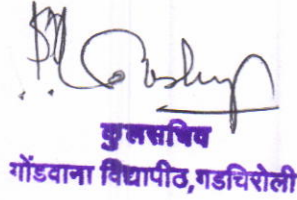 कुलसचिव
गोंडवाना विद्यापीठ,गडचिरोली